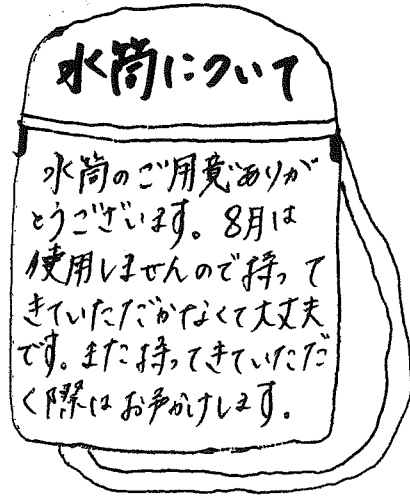 水筒について
水筒のご用意ありが
とうございます。8月は
使用しませんので持って
きていただかなくて大丈夫
です。また持ってきていただ
く際はお声かけします。